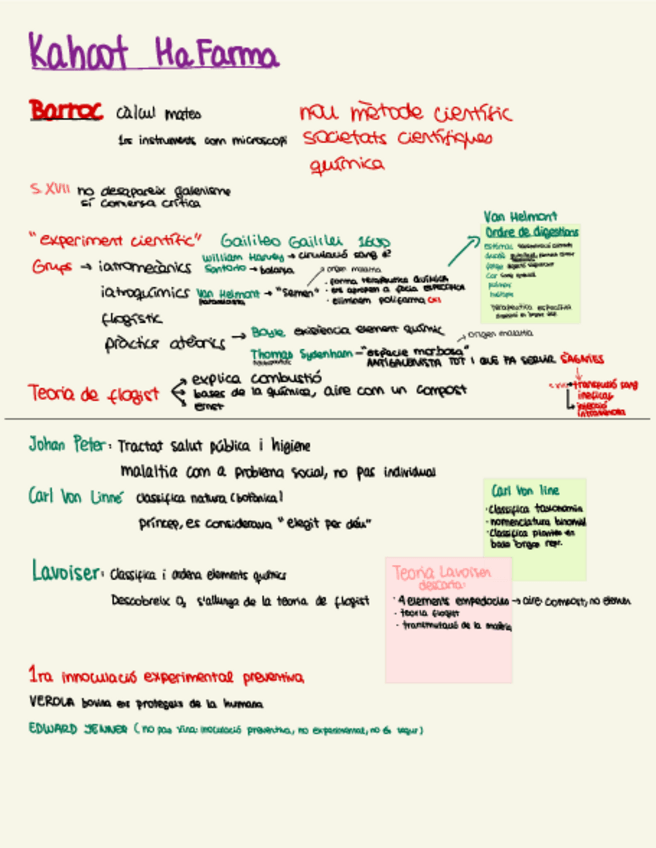 Kahoot Ha Farma
Barroc càlcul mates
1rs instruments com microscopi
nou mètode científic
societats científiques
química
S. XVII no desapareix galenisme
sí comença crítica
"experiment científic" Gailileo Gaililei 1600
Grups → iatromecànics
William Harvey → circulació sang
Santorio → balança
iatroquímics Van Helmont → "semen"
origen malaltia
· forma terapèutica química
· eliminem polifarma
flogístic
pràctics ateòrics → Boyle existència element químic
Thomas Sydenham - "espècie morbosa"
origen malaltia
ANTIGALENISTA TOT I QUE FA SERVIR SAGNIES
transfusió sang
ineficaç
injecció
intravenosa
Van Helmont
Ordre de digestions
Teoria de flogist
explica combustió
bases de la química, aire com un compost
ernst
Johan Peter: Tractat salut pública i higiene
malaltia com a problema social, no pas individual
Carl Von Linné classifica natura (botànica)
príncep, es considerava "elegit per déu"
Carl Von line
· classifica taxonomia
· nomenclatura binomial
· Classifica plantes en
base òrgans repr.
Lavoiser: Classifica i ordena elements químics
Descobreix O, s'allunga de la teoria de flogist
Teoria Lavoiser
descarta:
· 4 elements empedocles → aire: compost, no element
· teoria flogist
· transmutació de la matèria
1ra innoculació experimental preventiva
VEROLA bovina ens protegeis de la humana
EDWARD JENNER (no pas xina: inoculació preventiva, no experimental, no és segur)